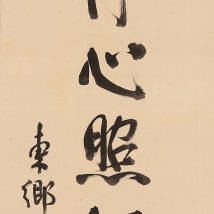 心照
東郷